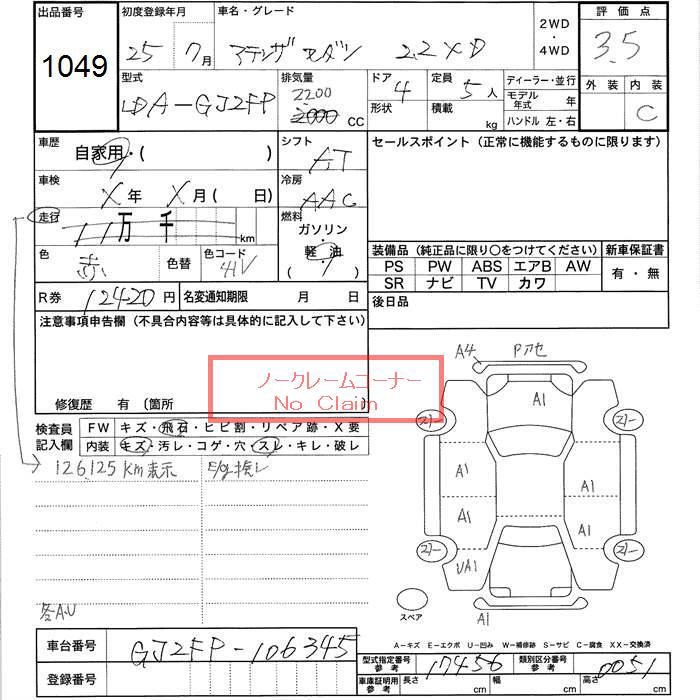 出品番号 初度登録年月 車名・グレード 2WD・4WD 評価点
1049 25 7月 アテンザ セダン 2.2XD 3.5
型式 排気量 ドア 定員 ディーラー・並行 外装 内装
LDA-GJ2FP 2200 2000 cc 4 形状 5人 積載 kg モデル年式 年 ハンドル 左・右 C
車歴 自家用・( ) シフト AT セールスポイント (正常に機能するものに限ります)
車検 X年 X月( 日) 冷房 AAC
走行 11万 千 km 燃料 ガソリン・軽油 ( )
装備品 (純正品に限り〇をつけてください) 新車保証書
色 赤 色替 色コード 41V PS PW ABS エアB AW 有・無
SR ナビ TV カワ
R券 12420円 名変通知期限 月 日 後日品
注意事項申告欄 (不具合内容等は具体的に記入して下さい)
ノークレームコーナー
No Claim
修復歴 有 〔箇所
検査員記入欄 FW キズ・飛石・ヒビ割・リペア跡・X要
内装 キズ・汚レ・コゲ・穴・スレ・キレ・破レ
126,125km表示 E/g
A4 Pアセ
A1
A1 A1
A1 A1
UA1
スペア A1
各A.U
A-キズ E-エクボ U-凹み W-補修跡 S-サビ C-腐食 XX-交換済
車台番号 GJ2FP-106345
型式指定番号 参考 17456 類別区分番号 参考 0051
登録番号 車庫証明用 参考 長さ cm 幅 cm 高さ cm